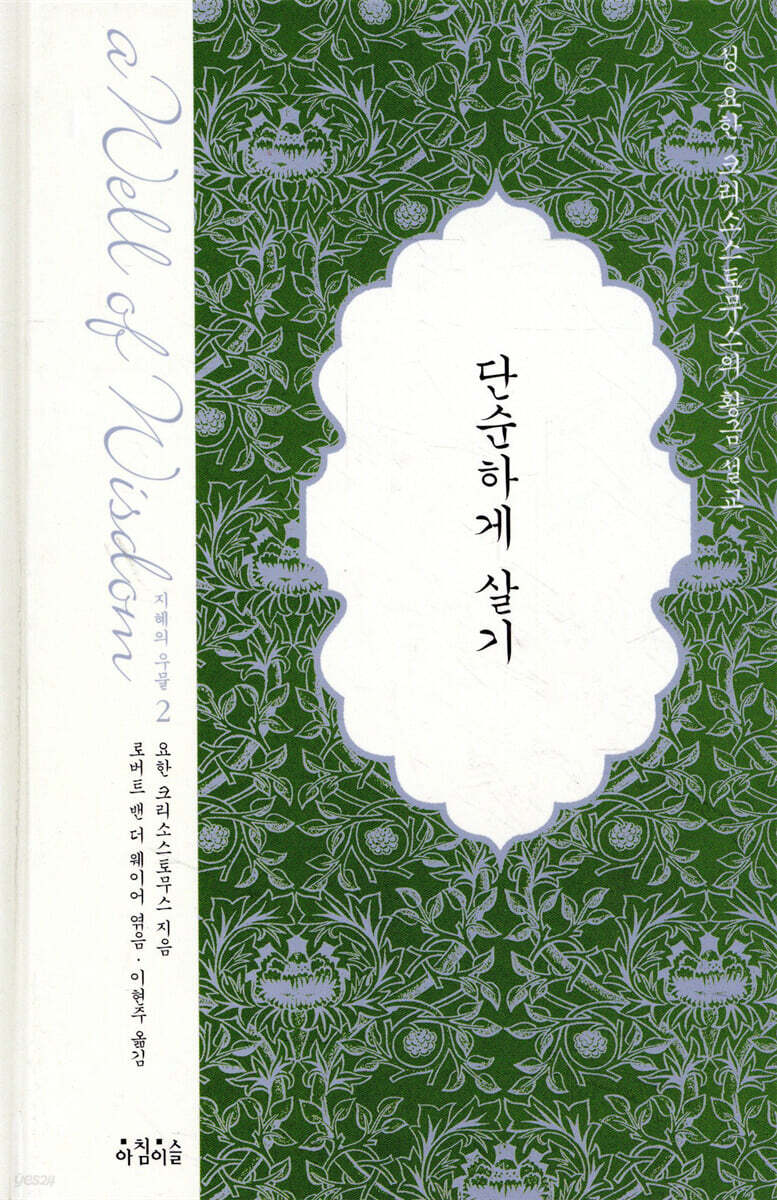 a Well of Wisdom
지혜의 우물 2
요한 크리소스토무스 지음
로버트 밴 더 웨이어 엮음 · 이현주 옮김
아침이슬
단순하게 살기
성 요한 크리소스토무스의 황금 설교
yes24